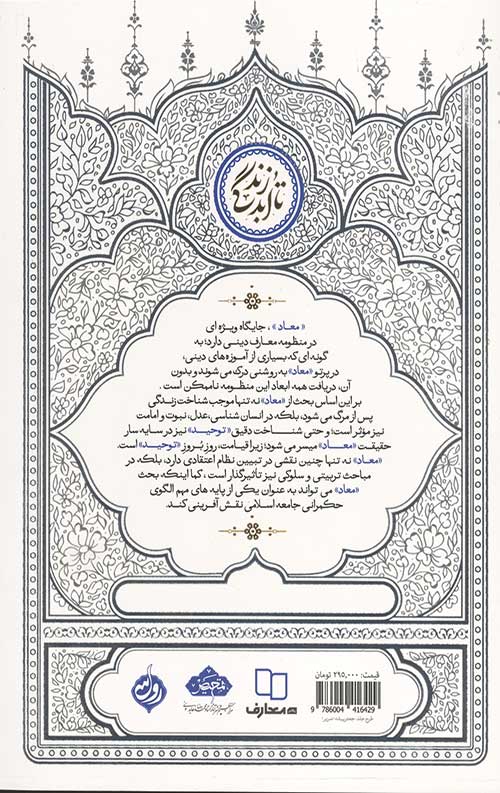 زندگی
تا ابد
« معاد » ، جایگاه ویژه ای
در منظومه معارف دینی دارد؛ به
گونه ای که بسیاری از آموزه های دینی،
در پرتو «معاد» به روشنی درک می شوند و بدون
آن، دریافت همه ابعاد این منظومه ناممکن است .
بر این اساس بحث از «معاد» نه تنها موجب شناخت زندگی
پس از مرگ می شود، بلکه در انسان شناسی، عدل، نبوت و امامت
نیز مؤثر است؛ و حتی شناخت دقیق «توحید» نیز در سایه سار
حقیقت «معاد» میسر می شود؛ زیرا قیامت، روز بُروزِ «توحید» است.
«معاد» نه تنها چنین نقشی در تبیین نظام اعتقادی دارد، بلکه در
مباحث تربیتی و سلوکی نیز تأثیرگذار است ، کما اینکه بحث
«معاد» می تواند به عنوان یکی از پایه های مهم الگوی
حکمرانی جامعه اسلامی نقش آفرینی کند.
قیمت: ۲۹۵,۰۰۰ تومان
9 786004 416429
معارف